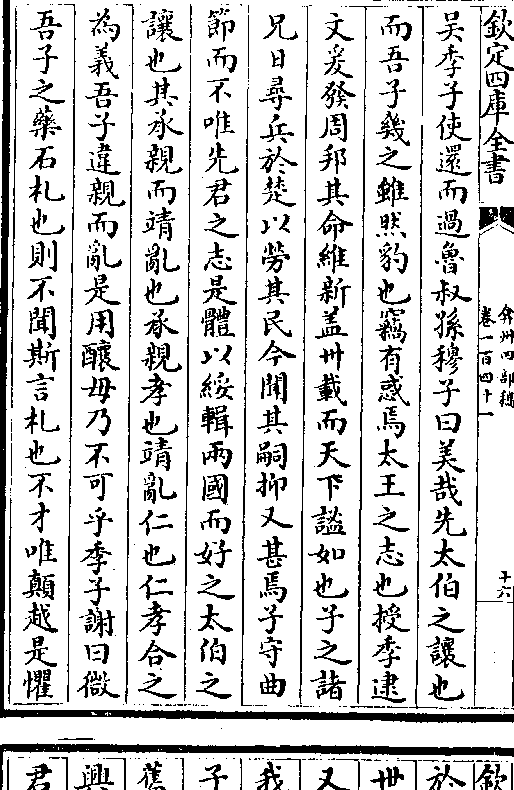 欽定四庫全書
弇州四部稿
卷一百四十一
十六
吳季子使還而過魯叔孫穆子曰美哉先太伯之讓也
而吾子幾之雖然豹也竊有惑焉太王之志也授季逮
文爰發周邦其命維新盖卅載而天下謐如也子之諸
兄日尋兵於楚以勞其民今閽其嗣抑又甚焉子守曲
節而不唯先君之志是體以綏輯兩國而好之太伯之
讓也其承親而靖亂也承親孝也靖亂仁也仁孝合之
為義吾子違親而亂是用釀毋乃不可乎季子謝曰微
吾子之藥石札也則不聞斯言札也不才唯顛越是懼
欽
於
世
又
我
子
舊
興
君